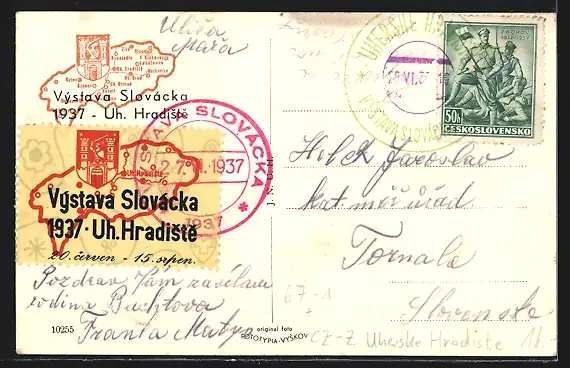 Výstava Slovácka
1937 - Uh. Hradiště
Výstava Slovácka
1937 · Uh. Hradiště
20. červen - 15. srpen.
Pozdrav Vám zasílá
rodina Buchtova
Franta Matya
10255
original foto
FOTOTYPIA-VYŠKOV
VÝSTAVA SLOVÁCKA
1937
1937
J. N. U. H.
UHERSKÉ
VÝSTAVA SLOVÁCKA
ZBOROV
1917-1937
50h
ČESKOSLOVENSKO
Jaroslav
kat měř úřad
Tornala
Slovensko
67-1
CZ-Z Uherske Hradiste 16.-